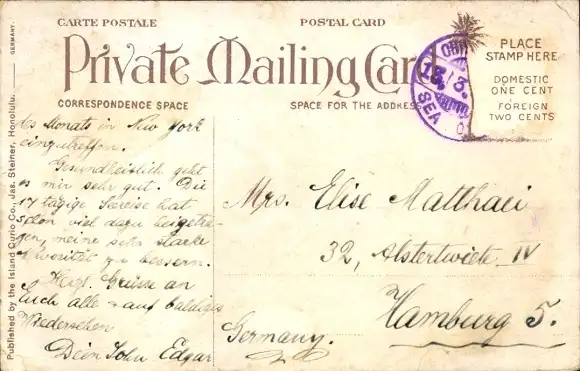 CARTE POSTALE
POSTAL CARD
Private Mailing Card
CORRESPONDENCE SPACE
SPACE FOR THE ADDRESS
PLACE
STAMP HERE
DOMESTIC
ONE CENT
FOREIGN
TWO CENTS
15/3.
SEA
GERMANY.
Published by the Island Curio Co., Jas. Steiner, Honolulu.
des Monats in New York
einzutreffen.
Gesundheitlich geht
es mir sehr gut. Die
17 tägige Seereise hat
schon viel dazu beigetra-
gen, meine sehr starke
Nervosität zu bessern.
Herzl. Grüsse an
Euch alle & auf baldiges
Wiedersehen
Dein Sohn Edgar
Mrs. Elise Matthaei
32, Alstertwiete IV
Hamburg 5.
Germany.